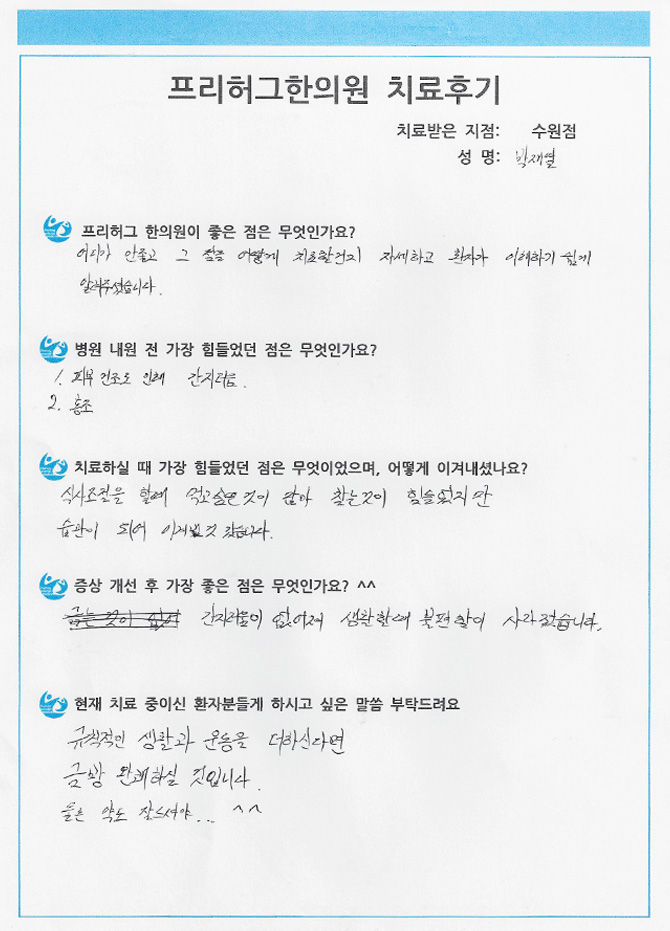 프리허그한의원 치료후기
치료받은 지점: 수원점
성 명: 박재열
프리허그 한의원이 좋은 점은 무엇인가요?
어디가 안좋고 그 점을 어떻게 치료할건지 자세하고 환자가 이해하기 쉽게
알려주셨습니다.
병원 내원 전 가장 힘들었던 점은 무엇인가요?
1. 피부 건조로 인해 간지러움.
2. 홍조
치료하실 때 가장 힘들었던 점은 무엇이었으며, 어떻게 이겨내셨나요?
식사조절을 할때 먹고싶은것이 많아 참는것이 힘들었지만
습관이 되어 이겨낸것 같습니다.
증상 개선 후 가장 좋은 점은 무엇인가요? ^^
간지러움이 없어져 생활할때 불편함이 사라졌습니다.
현재 치료 중이신 환자분들게 하시고 싶은 말씀 부탁드려요
규칙적인 생활과 운동을 더하신다면
금방 완쾌하실 것입니다.
물론 약도 잘드셔야... ^^